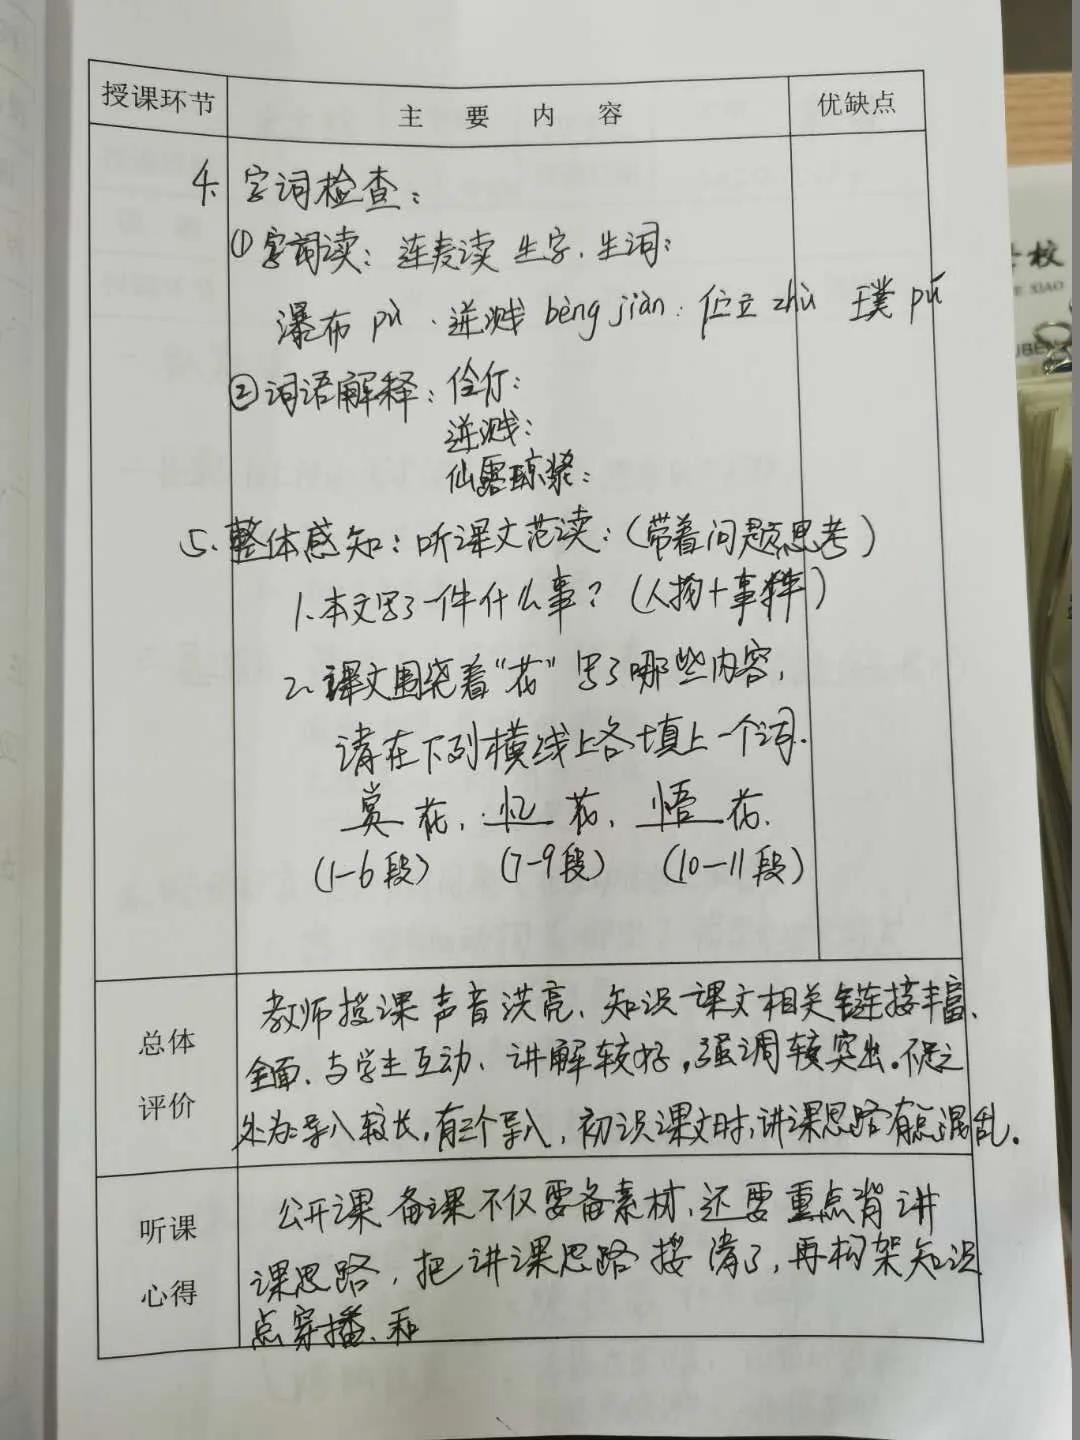 授课环节 主要内容 优缺点
4. 字词检查：
① 字词读：连麦读 生字、生词：
瀑布 pù、迸溅 bèng jiàn、伫立 zhù 璞 pú
② 词语解释：伶仃：
迸溅：
仙露琼浆：
5. 整体感知：听课文范读：（带着问题思考）
1. 本文写了一件什么事？（人物+事件）
2. 课文围绕着“花”写了哪些内容，
请在下列横线上各填上一个词.
赏花，忆花，悟花.
（1-6段） （7-9段） （10-11段）
总体评价
教师授课声音洪亮、知识课文相关链接丰富、
全面、与学生互动、讲解较好，强调较突出。不足之
处为导入较长，有三个导入，初识课文时，讲课思路有点混乱。
听课心得
公开课备课不仅要备素材，还要重点背讲
课思路，把讲课思路 清了，再构架知识
点穿播、和
学校
XIAO